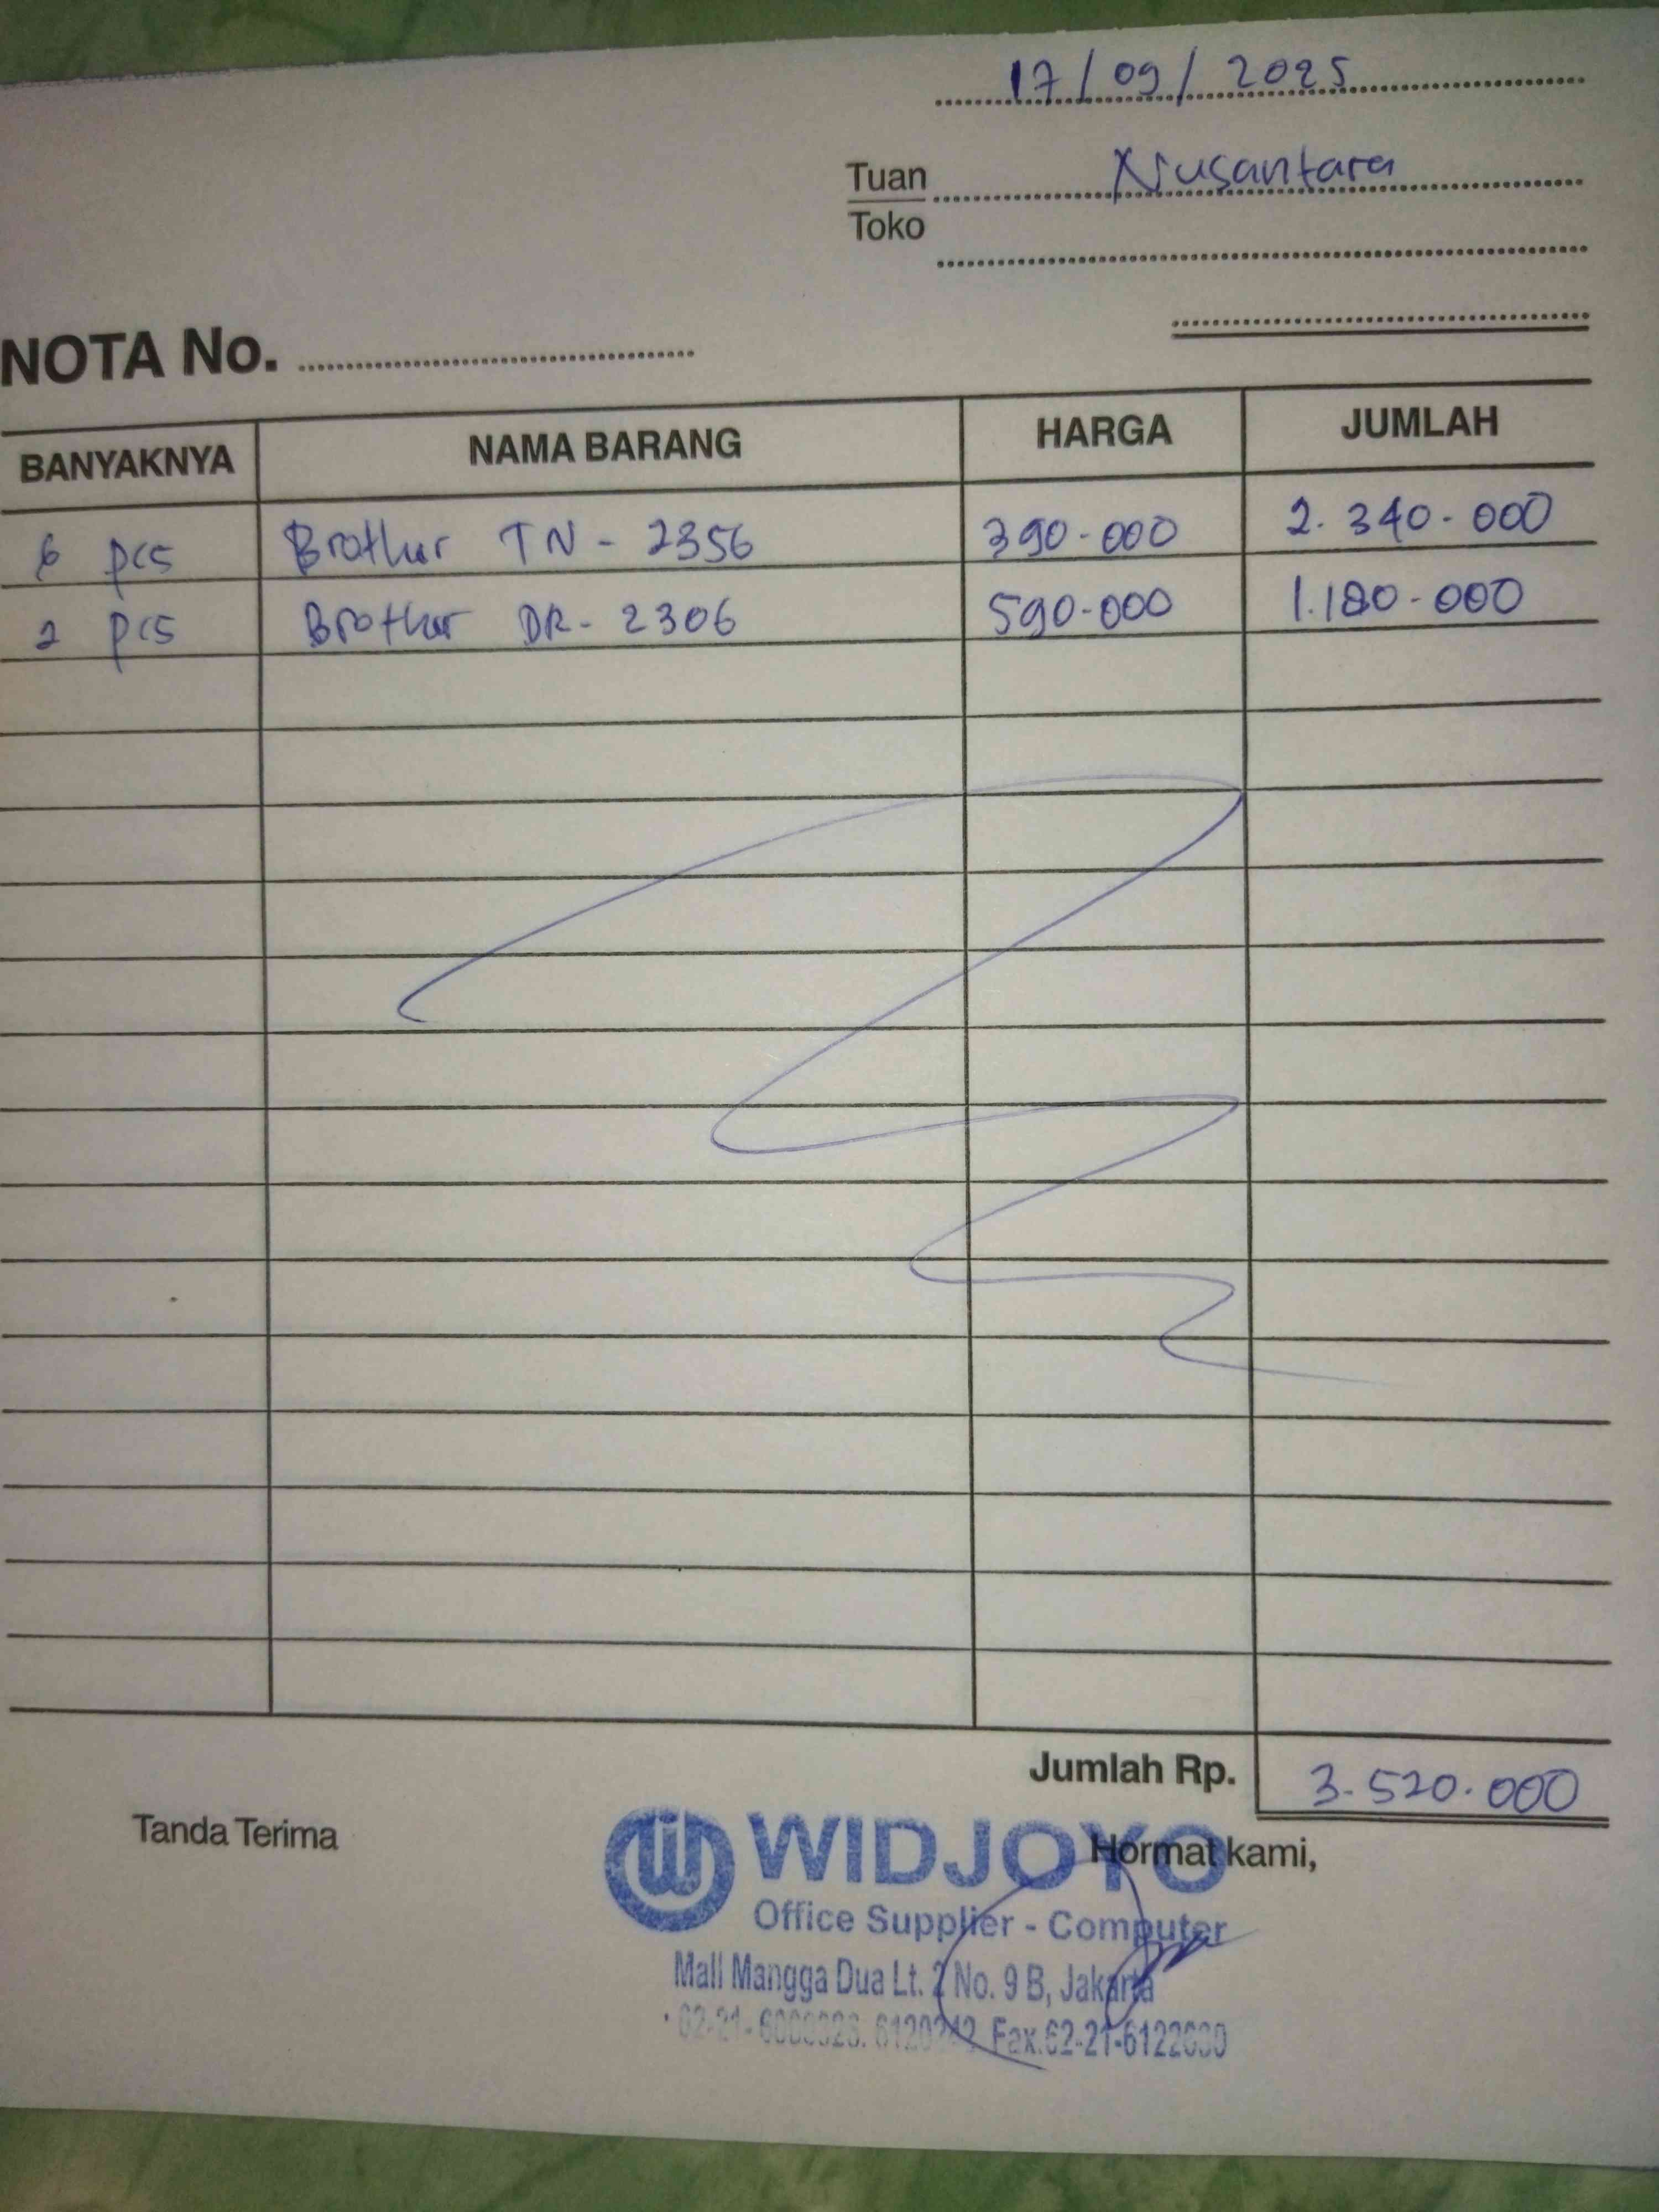 17/09/2025
Tuan Nusantara
Toko
NOTA No.
BANYAKNYA NAMA BARANG HARGA JUMLAH
6 pcs Brother TN - 2356 390-000 2.340-000
2 pcs Brother DR- 2306 590-000 1.180-000
Jumlah Rp. 3.520.000
Tanda Terima
Hormat kami,
WIDJOYO
Office Supplier - Computer
Mall Mangga Dua Lt. 2 No. 9 B, Jakarta
Fax.62-21-